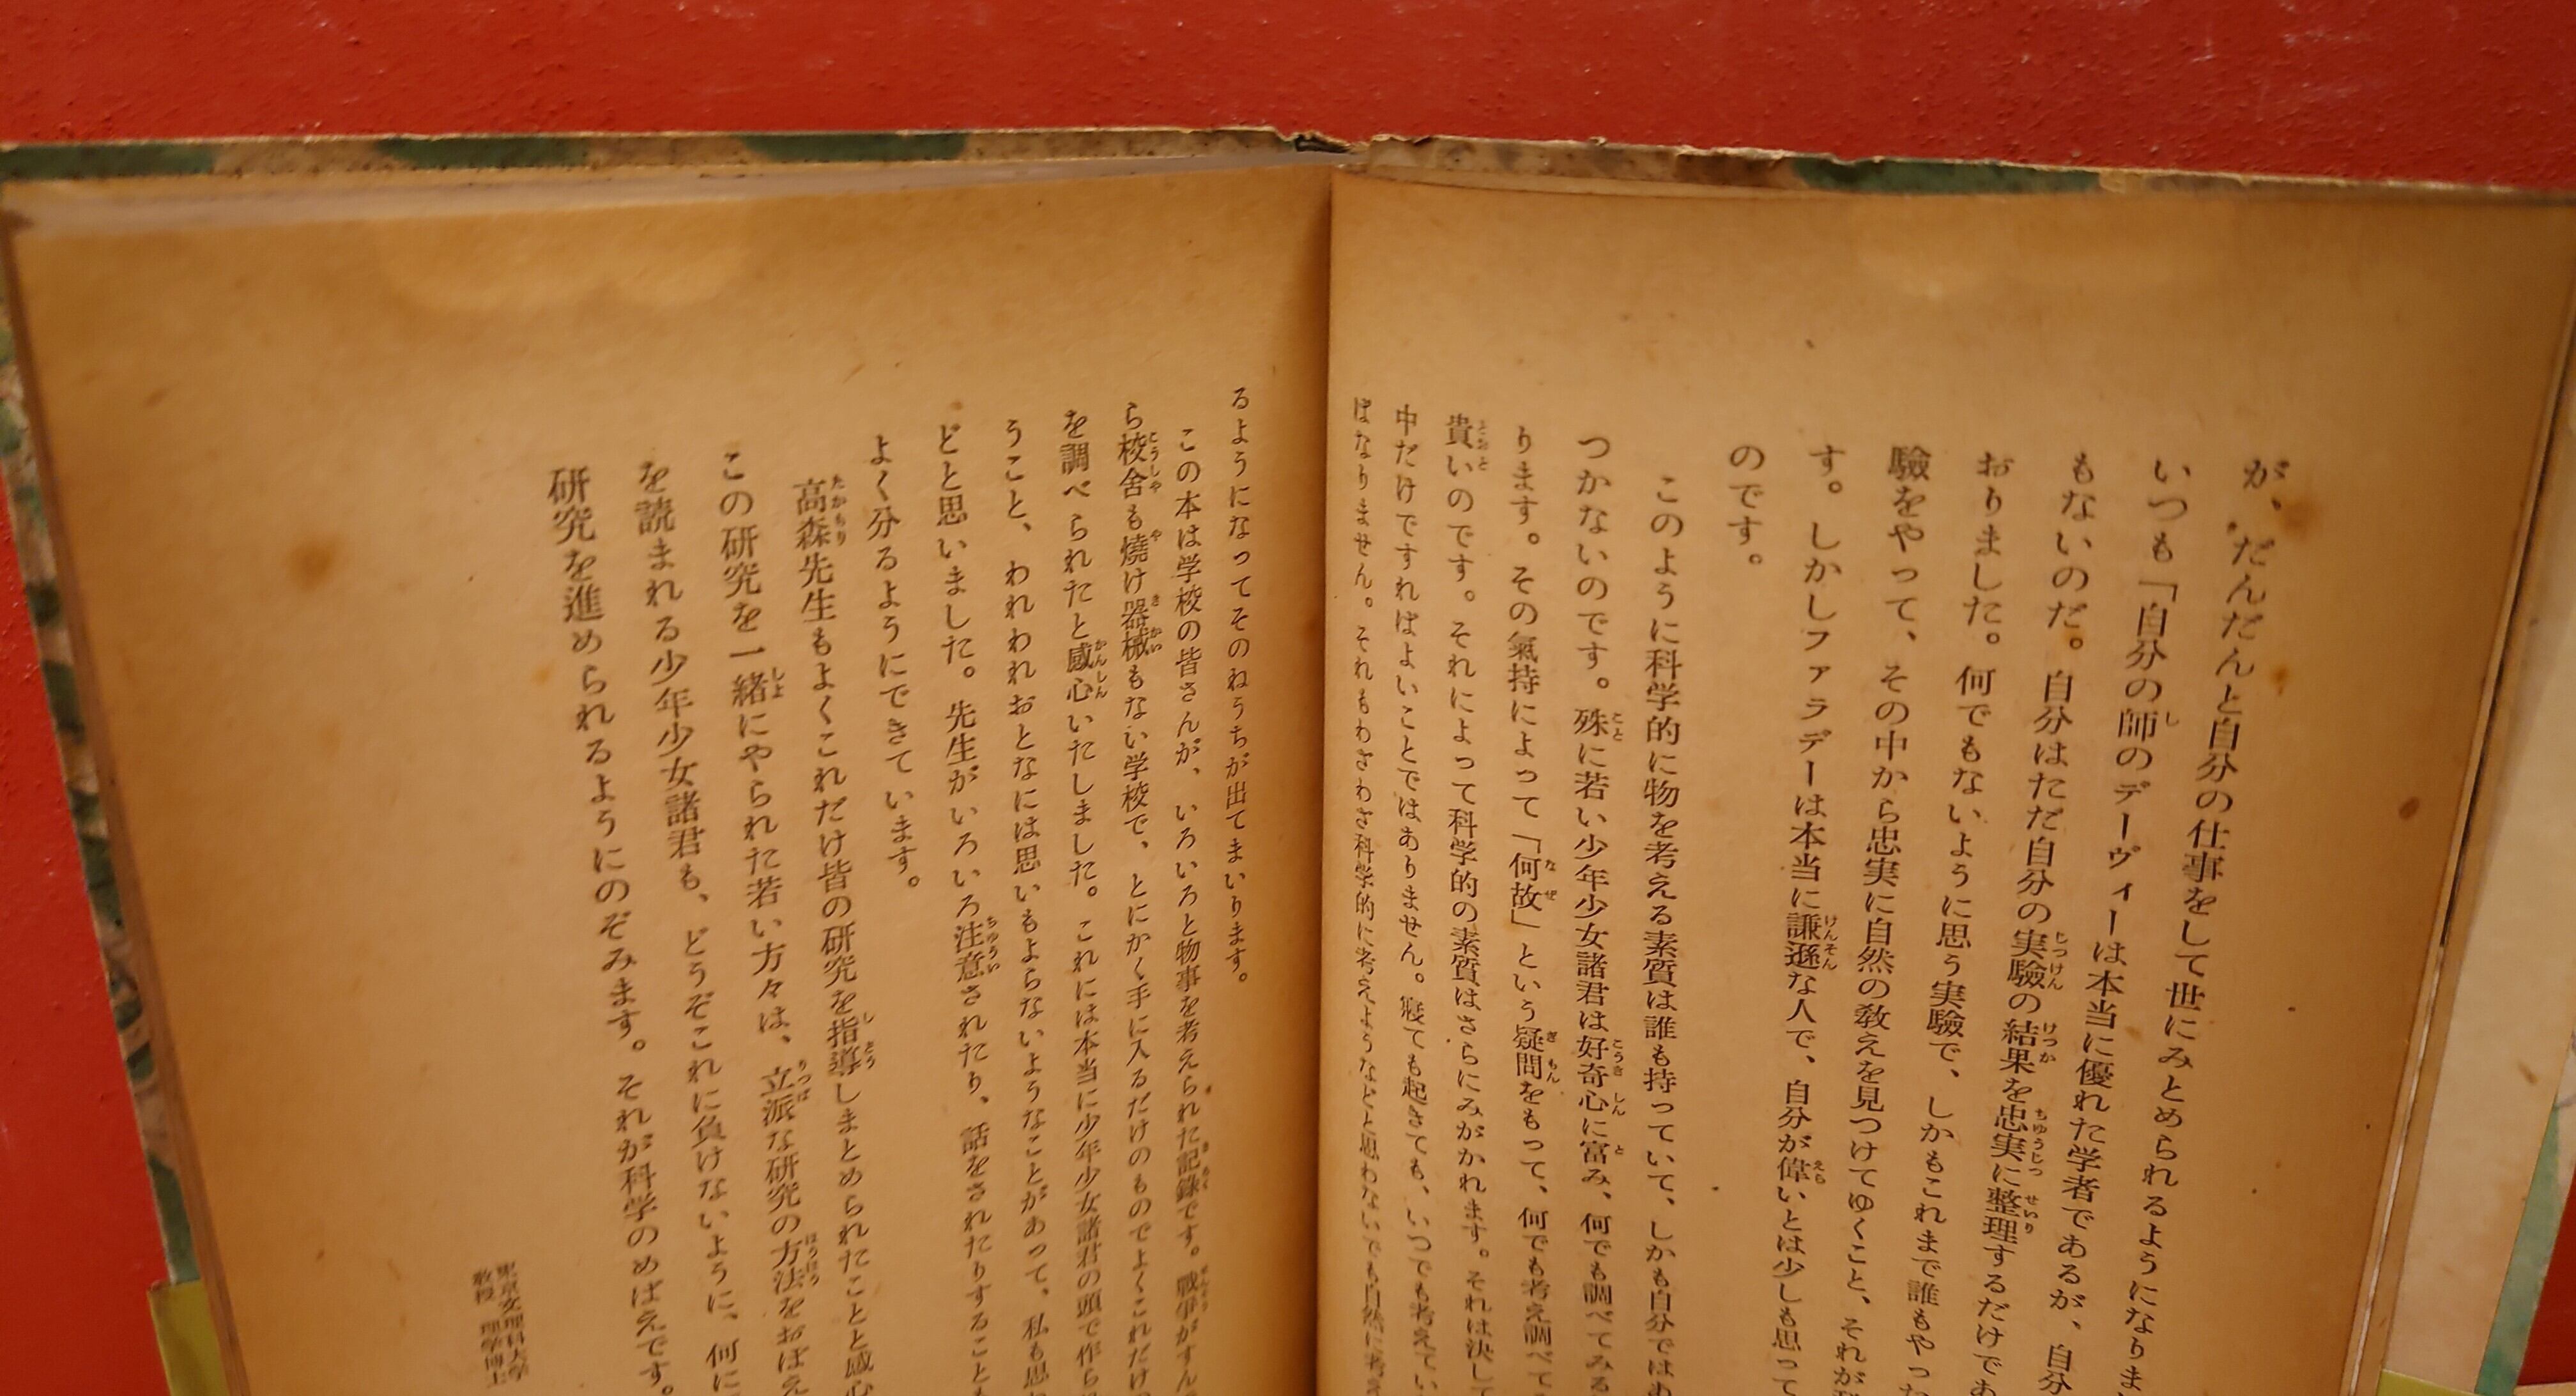 が、だんだんと自分の仕事をして世にみとめられるようになりま
いつも「自分の師のデーヴィーは本当に優れた学者であるが、自分
もないのだ。自分はただ自分の実驗の結果を忠実に整理するだけであ
おりました。何でもないように思う実驗で、しかもこれまで誰もやっ
驗をやって、その中から忠実に自然の教えを見つけてゆくこと、それが
す。しかしファラデーは本当に謙遜な人で、自分が偉いとは少しも思って
のです。
このように科学的に物を考える素質は誰も持っていて、しかも自分ではあ
つかないのです。殊に若い少年少女諸君は好奇心に富み、何でも調べてみる
ります。その氣持によって「何故」という疑問をもって、何でも考え調べて
貴いのです。それによって科学的の素質はさらにみがかれます。それは決して
中だけですればよいことではありません。寝ても起きても、いつでも考えてい
ばなりません。それもわざわざ科学的に考えようなどと思わないでも自然に考え
るようになってそのねうちが出てまいります。
この本は学校の皆さんが、いろいろと物事を考えられた記録です。戰爭がすん
ら校舍も燒け器械もない学校で、とにかく手に入るだけのものでよくこれだけ
を調べられたと感心いたしました。これには本当に少年少女諸君の頭で作ら
うこと、われわれおとなには思いもよらないようなことがあって、私も思
どと思いました。先生がいろいろ注意されたり、話をされたりすること
よく分るようにできています。
高森先生もよくこれだけ皆の研究を指導しまとめられたことと感心
この研究を一緒にやられた若い方々は、立派な研究の方法をおぼえ
を読まれる少年少女諸君も、どうぞこれに負けないように、何に
研究を進められるようにのぞみます。それが科学のめばえです。
東京文理科大学
教授 理學博士